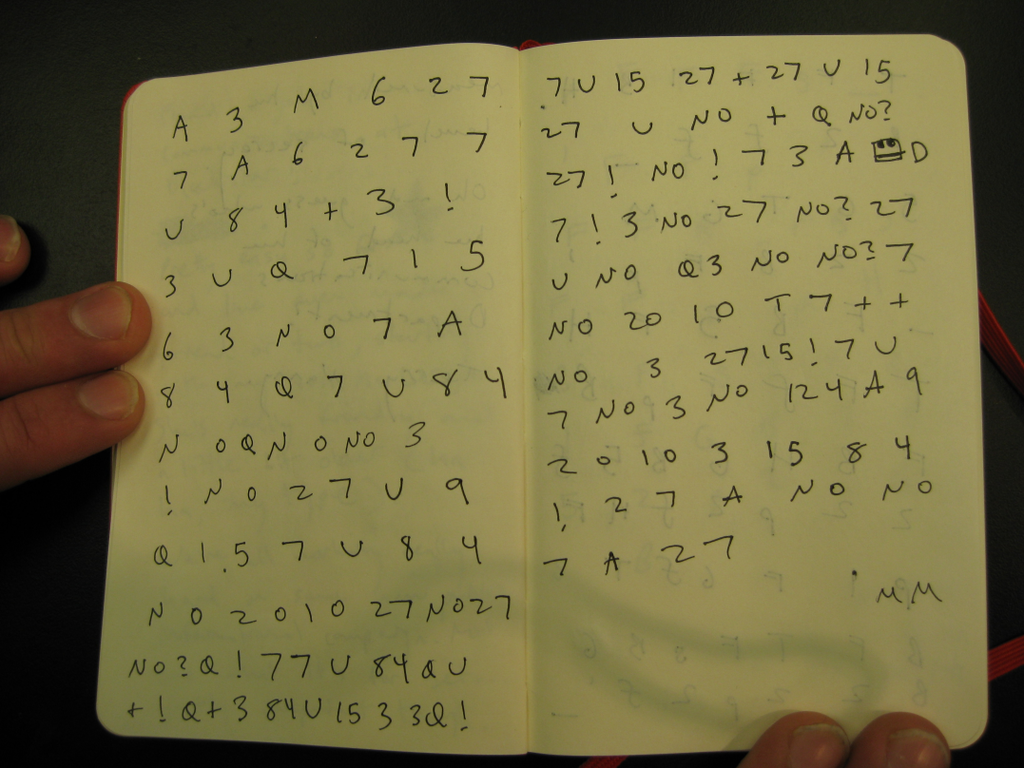 A 3 M 6 2 7
7 A 6 2 7 7
U 8 4 + 3 !
3 U Q 7 1 5
6 3 N 0 7 A
8 4 Q 7 U 8 4
N 0 Q N 0 NO 3
! N 0 2 7 U 9
Q 1 5 7 U 8 4
N 0 2 0 1 0 27 NO 27
NO? Q ! 7 7 U 84 Q U
+ ! Q + 3 84 U 15 3 3Q !
7 U 15 27 + 27 U 15
27 U NO + Q NO?
27 ! NO ! 7 3 A D
7 ! 3 NO 27 NO? 27
U NO Q3 NO NO? 7
NO 20 10 T 7 + +
NO 3 27 15 ! 7 U
7 NO 3 NO 124 A 9
2 0 10 3 15 8 4
! 2 7 A NO NO
7 A 27
M.M